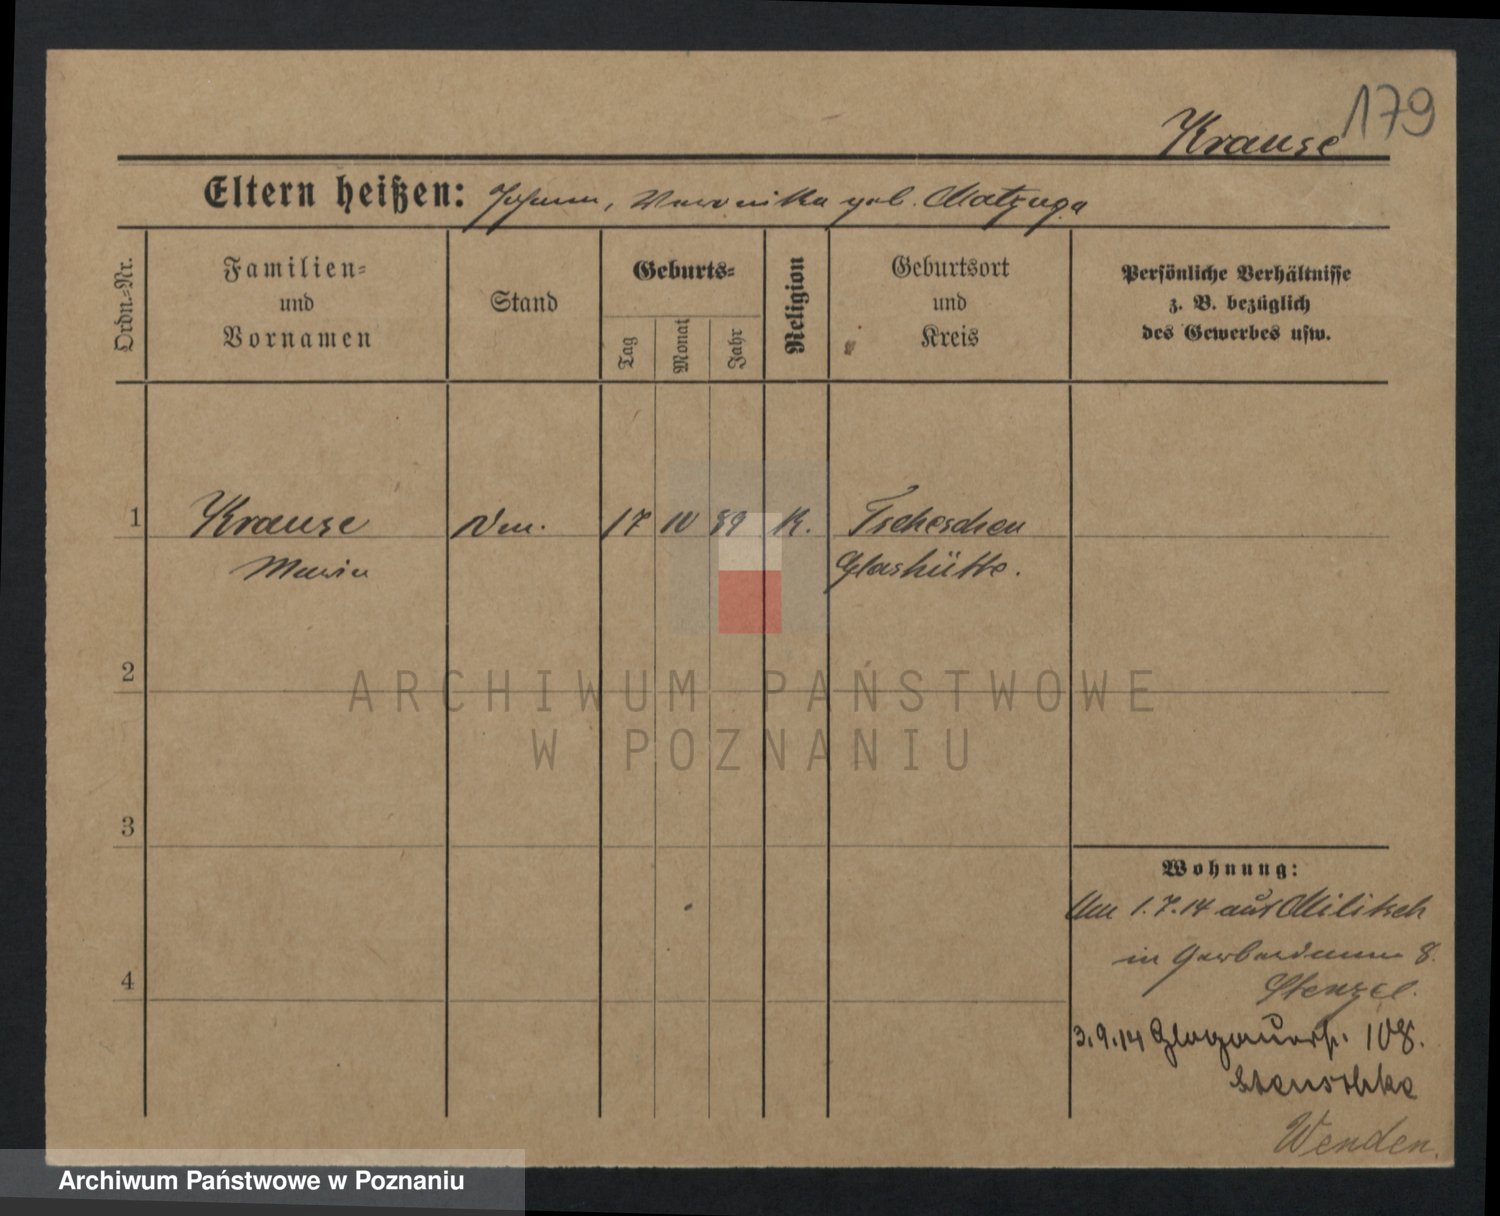 179
Krause
Eltern heißen: Johann, Veronika geb. Matzuga
Ordn.-Nr.
Familien-
und
Vornamen
Stand
Geburts-
Tag
Monat
Jahr
Religion
Geburtsort
und
Kreis
Persönliche Verhältnisse
z. B. bezüglich
des Gewerbes usw.
1
Krause
Maria
17
89
K.
Tscheschen
Glashütte.
2
ARCHIWUM PAŃSTWOWE
W POZNANIU
3
4
Wohnung:
Am 1.7.14 aus Militsch
in Gerberdamm 8.
Stenzel.
3.9.14 Glogauerstr. 108.
Wenden.
Archiwum Państwowe w Poznaniu